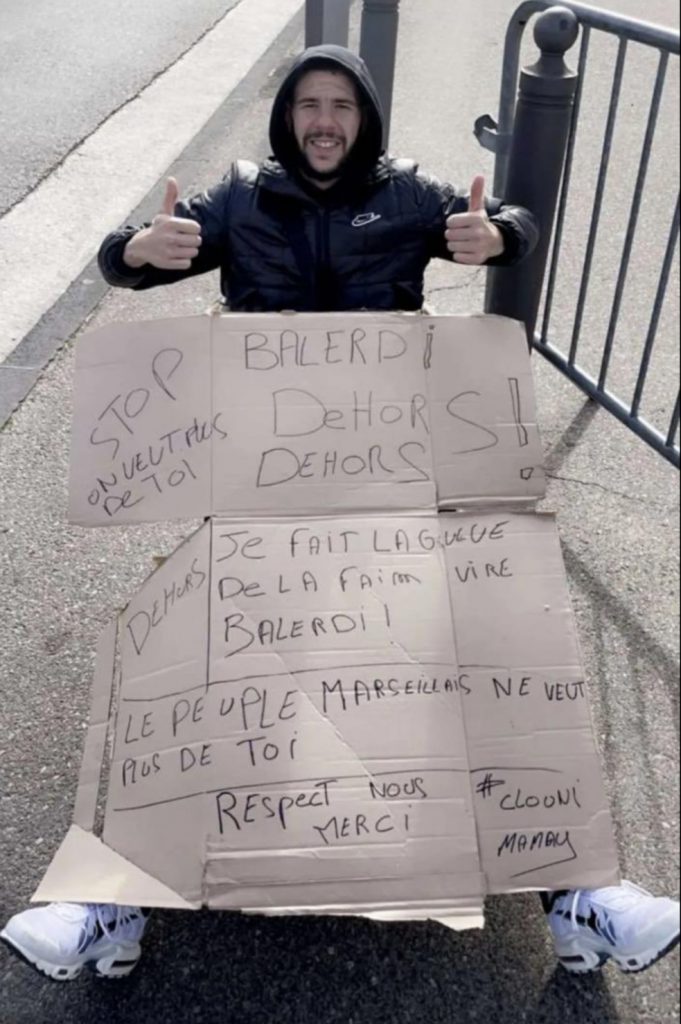 STOP
ON VEUT PLUS
DE TOI
BALERDi
DeHORS!
DEHORS
DEHORS
Je FAIT LA GUEUE
De LA FAim VIRE
BALERDi!
LE PEUPLE MARSEILLAIS NE VEUT
PLUS DE TOi
RESpecT NOUS
MERCi
#CLOONi